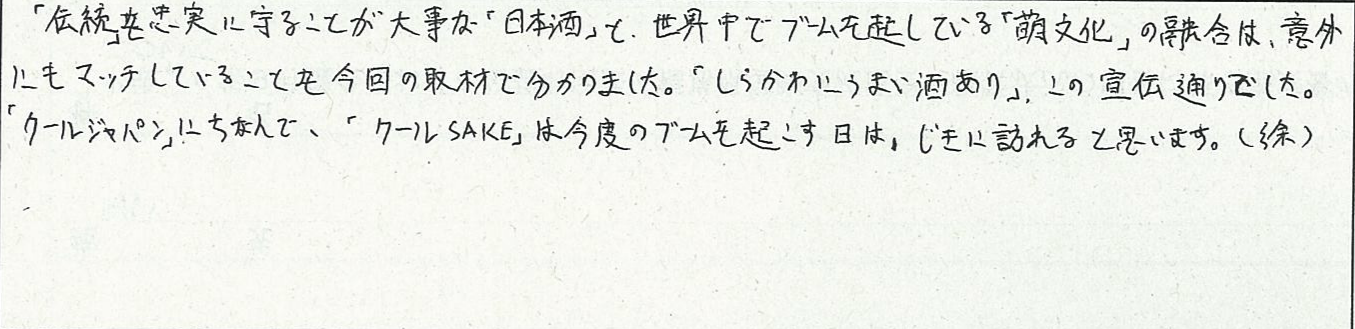 「伝統」を忠実に守ることが大事な「日本酒」と、世界中でブームを起している「萌文化」の融合は、意外
にもマッチしていることを今回の取材で分かりました。「しらかわにうまい酒あり」、この宣伝通りでした。
「クールジャパン」にちなんで、「クールSAKE」は今度のブームを起こす日は、じきに訪れると思います。(徐)